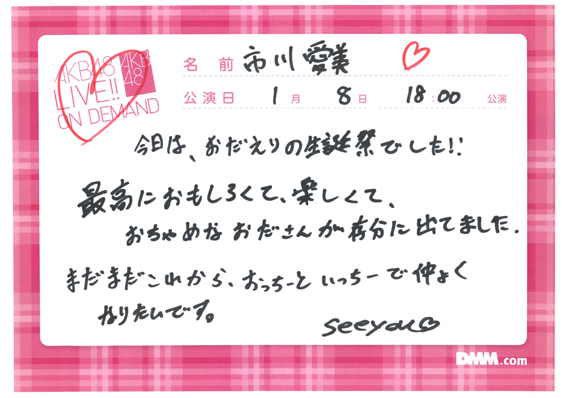 AKB48
LIVE!!
ON DEMAND
AKB
48
名前 市川愛美
公演日 1月 8日 18:00 公演
今日は、おだえりの生誕祭でした!!
最高におもしろくて、楽しくて、
おちゃめなおださんが存分に出てました.
まだまだこれから、おっちーといっちーで仲よく
なりたいです。
seeyou
DMM.com